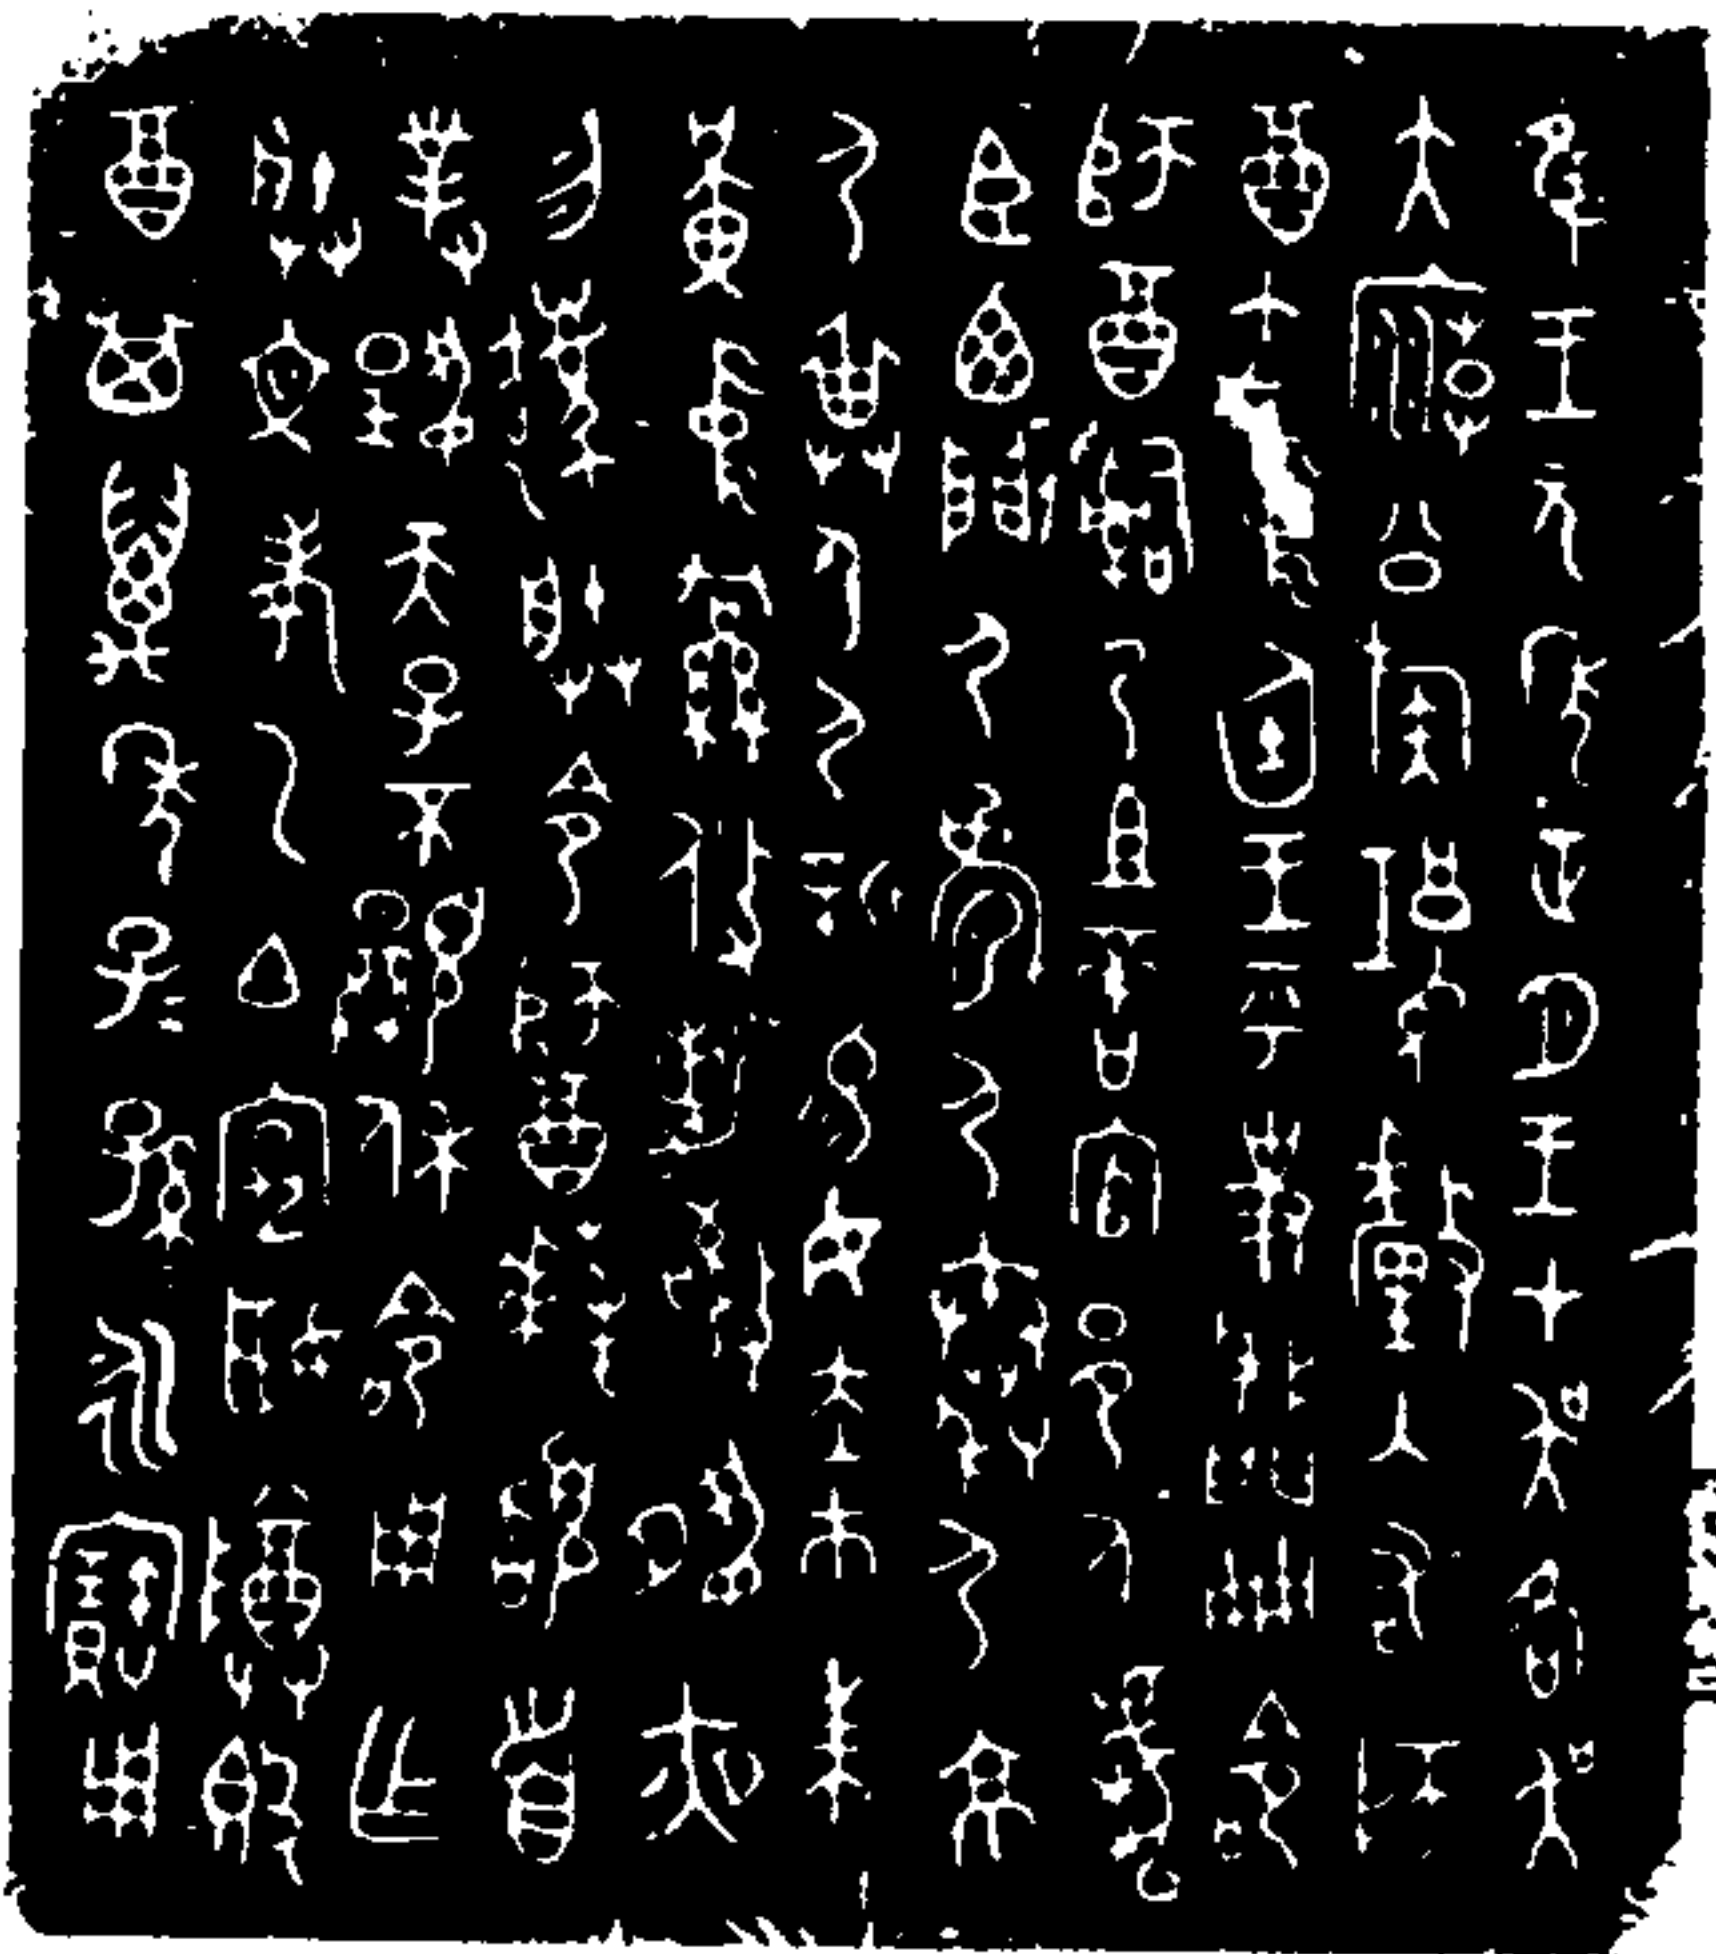 隹王元年正月王才吳各吳
大廟公族𩵦釐入右師
酉立中廷王乎史牆冊命
師酉𤔲乃且啻官邑人虎
臣西門尸𩁹尸秦尸京
尸畁身尸新易女赤巿朱
黃中絅攸勒敬夙夜
勿灋朕令師酉拜𩒨首
對揚天子不顯休命用乍
朕文考乙白宄姬尊𣪘
酉其萬年子子孫孫永寶用